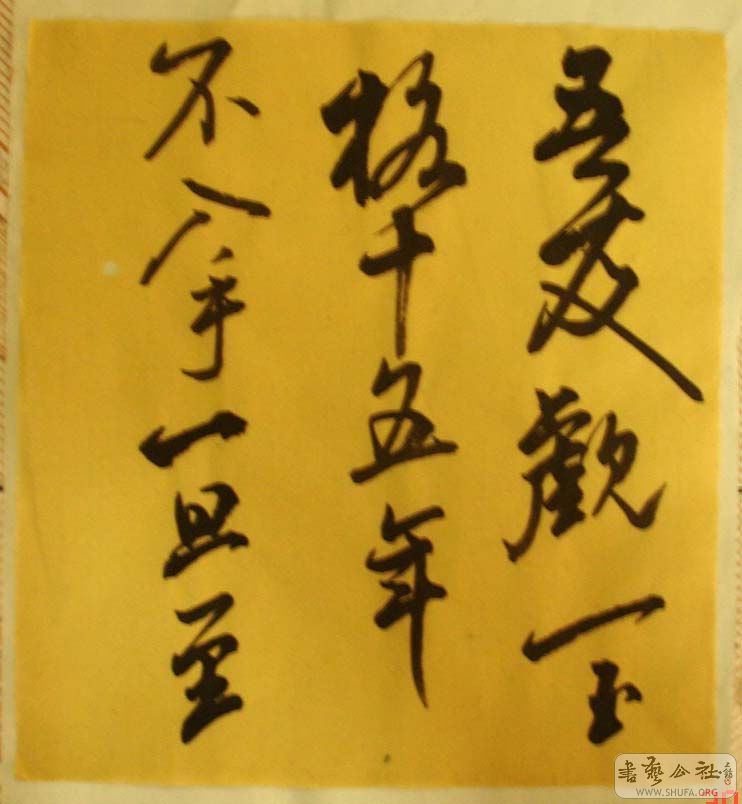 吾友觀一玉
格十五年
不入手一旦至
書藝公社
WWW.SHUFA.ORG